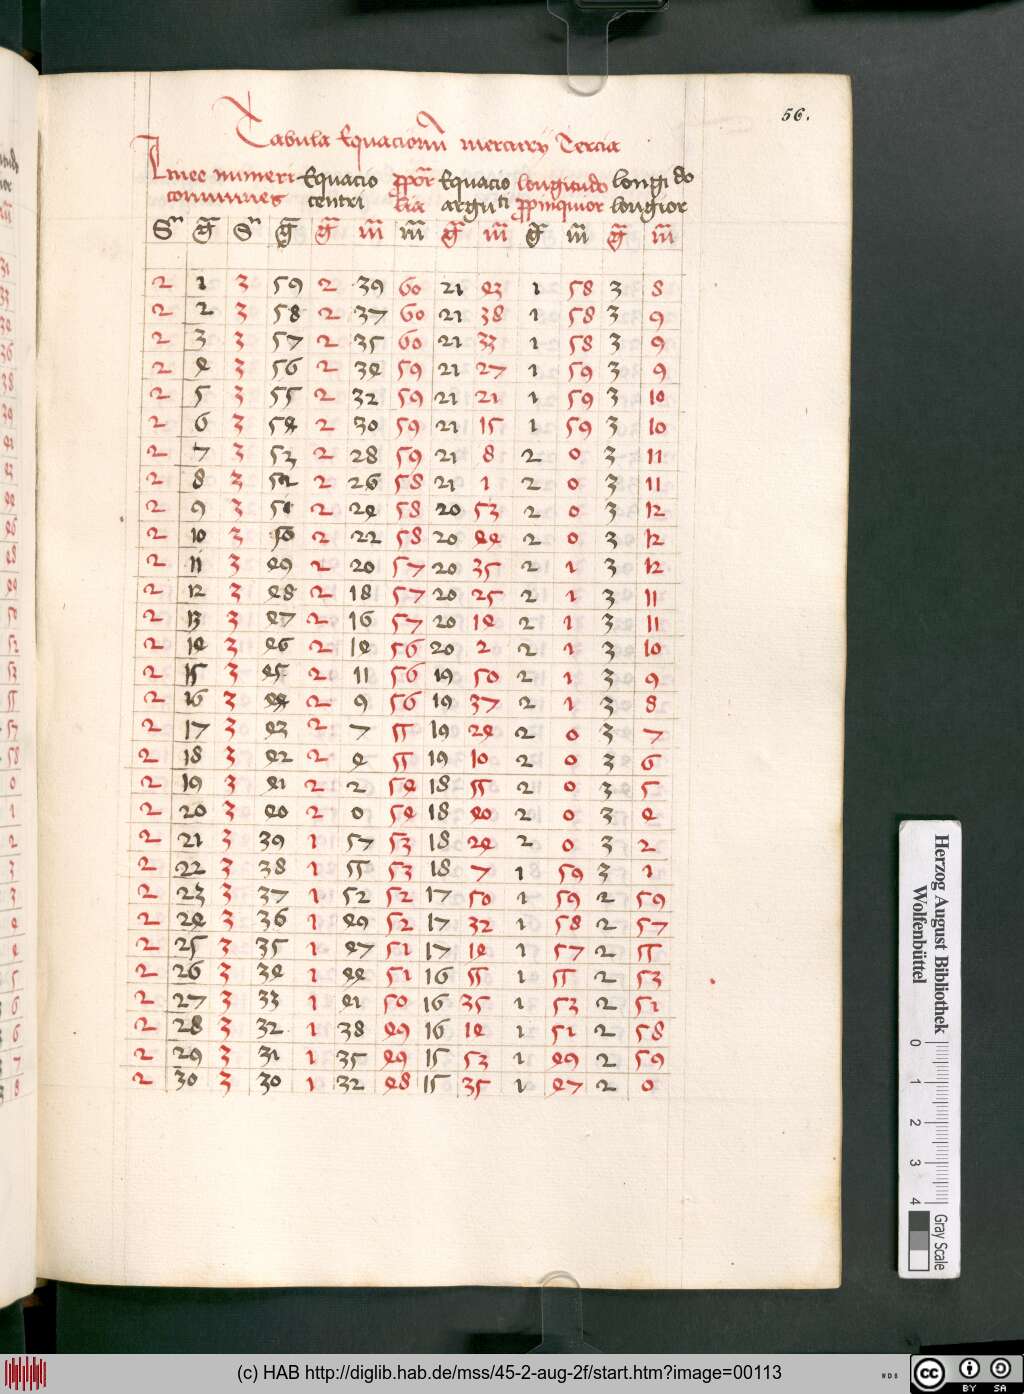 56.
Tabula Equacionum mercury Tercia
Linee numeri Equacio ppor Equacio longitudo longi do
communes centri lia argu ti ppinquior longior
Sn g Sn g g m m g m g m g m
2 1 3 59 2 39 60 21 43 1 58 3 8
2 2 3 58 2 37 60 21 38 1 58 3 9
2 3 3 57 2 35 60 21 33 1 58 3 9
2 4 3 56 2 34 59 21 27 1 59 3 9
2 5 3 55 2 32 59 21 21 1 59 3 10
2 6 3 54 2 30 59 21 15 1 59 3 10
2 7 3 53 2 28 59 21 8 2 0 3 11
2 8 3 52 2 26 58 21 1 2 0 3 11
2 9 3 51 2 24 58 20 53 2 0 3 12
2 10 3 50 2 22 58 20 44 2 0 3 12
2 11 3 49 2 20 57 20 35 2 1 3 12
2 12 3 48 2 18 57 20 25 2 1 3 11
2 13 3 47 2 16 57 20 14 2 1 3 11
2 14 3 46 2 14 56 20 2 2 1 3 10
2 15 3 45 2 11 56 19 50 2 1 3 9
2 16 3 44 2 9 56 19 37 2 1 3 8
2 17 3 43 2 7 55 19 24 2 0 3 7
2 18 3 42 2 4 55 19 10 2 0 3 6
2 19 3 41 2 2 54 18 55 2 0 3 5
2 20 3 40 2 0 54 18 40 2 0 3 4
2 21 3 39 1 57 53 18 24 2 0 3 2
2 22 3 38 1 55 53 18 7 1 59 3 1
2 23 3 37 1 52 52 17 50 1 59 2 59
2 24 3 36 1 49 52 17 32 1 58 2 57
2 25 3 35 1 47 51 17 14 1 57 2 55
2 26 3 34 1 44 51 16 55 1 55 2 53
2 27 3 33 1 41 50 16 35 1 53 2 51
2 28 3 32 1 38 49 16 14 1 51 2 58
2 29 3 31 1 35 49 15 53 1 49 2 59
2 30 3 30 1 32 48 15 35 1 47 2 0
Herzog August Bibliothek
Wolfenbüttel
0 1 2 3 4
Gray Scale
(c) HAB http://diglib.hab.de/mss/45-2-aug-2f/start.htm?image=00113
cc BY SA